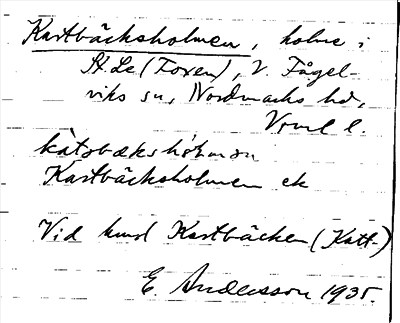 Kastbäcksholmen, holme i
St. Le (Foxen), V. Fågel-
viks sn, Nordmarks hd,
Vrml l.
kåtsbækshòlmən
Kastbäcksholmen ek
Vid Kastbäcken (Katt-)
E. Andersson 1935.